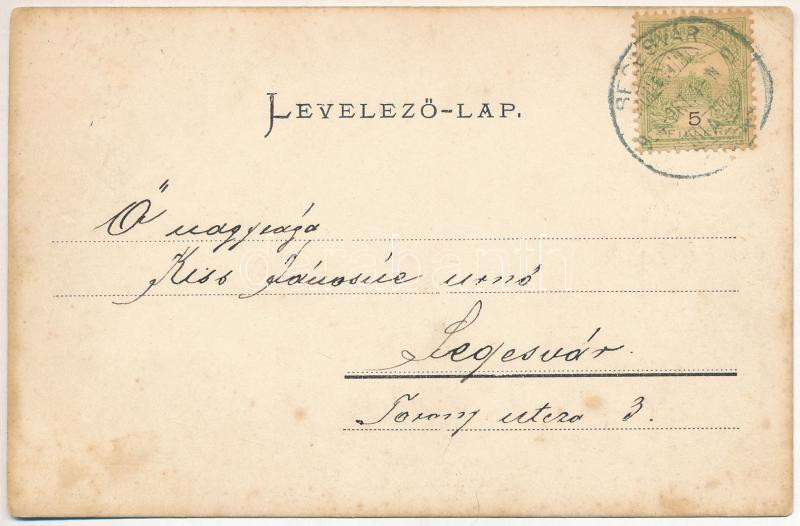 LEVELEZŐ-LAP.
SEGESVÁR
5
Ő nagysága
Kiss Jánosné urnő
Segesvár.
Torony utcza 3.
darabanth